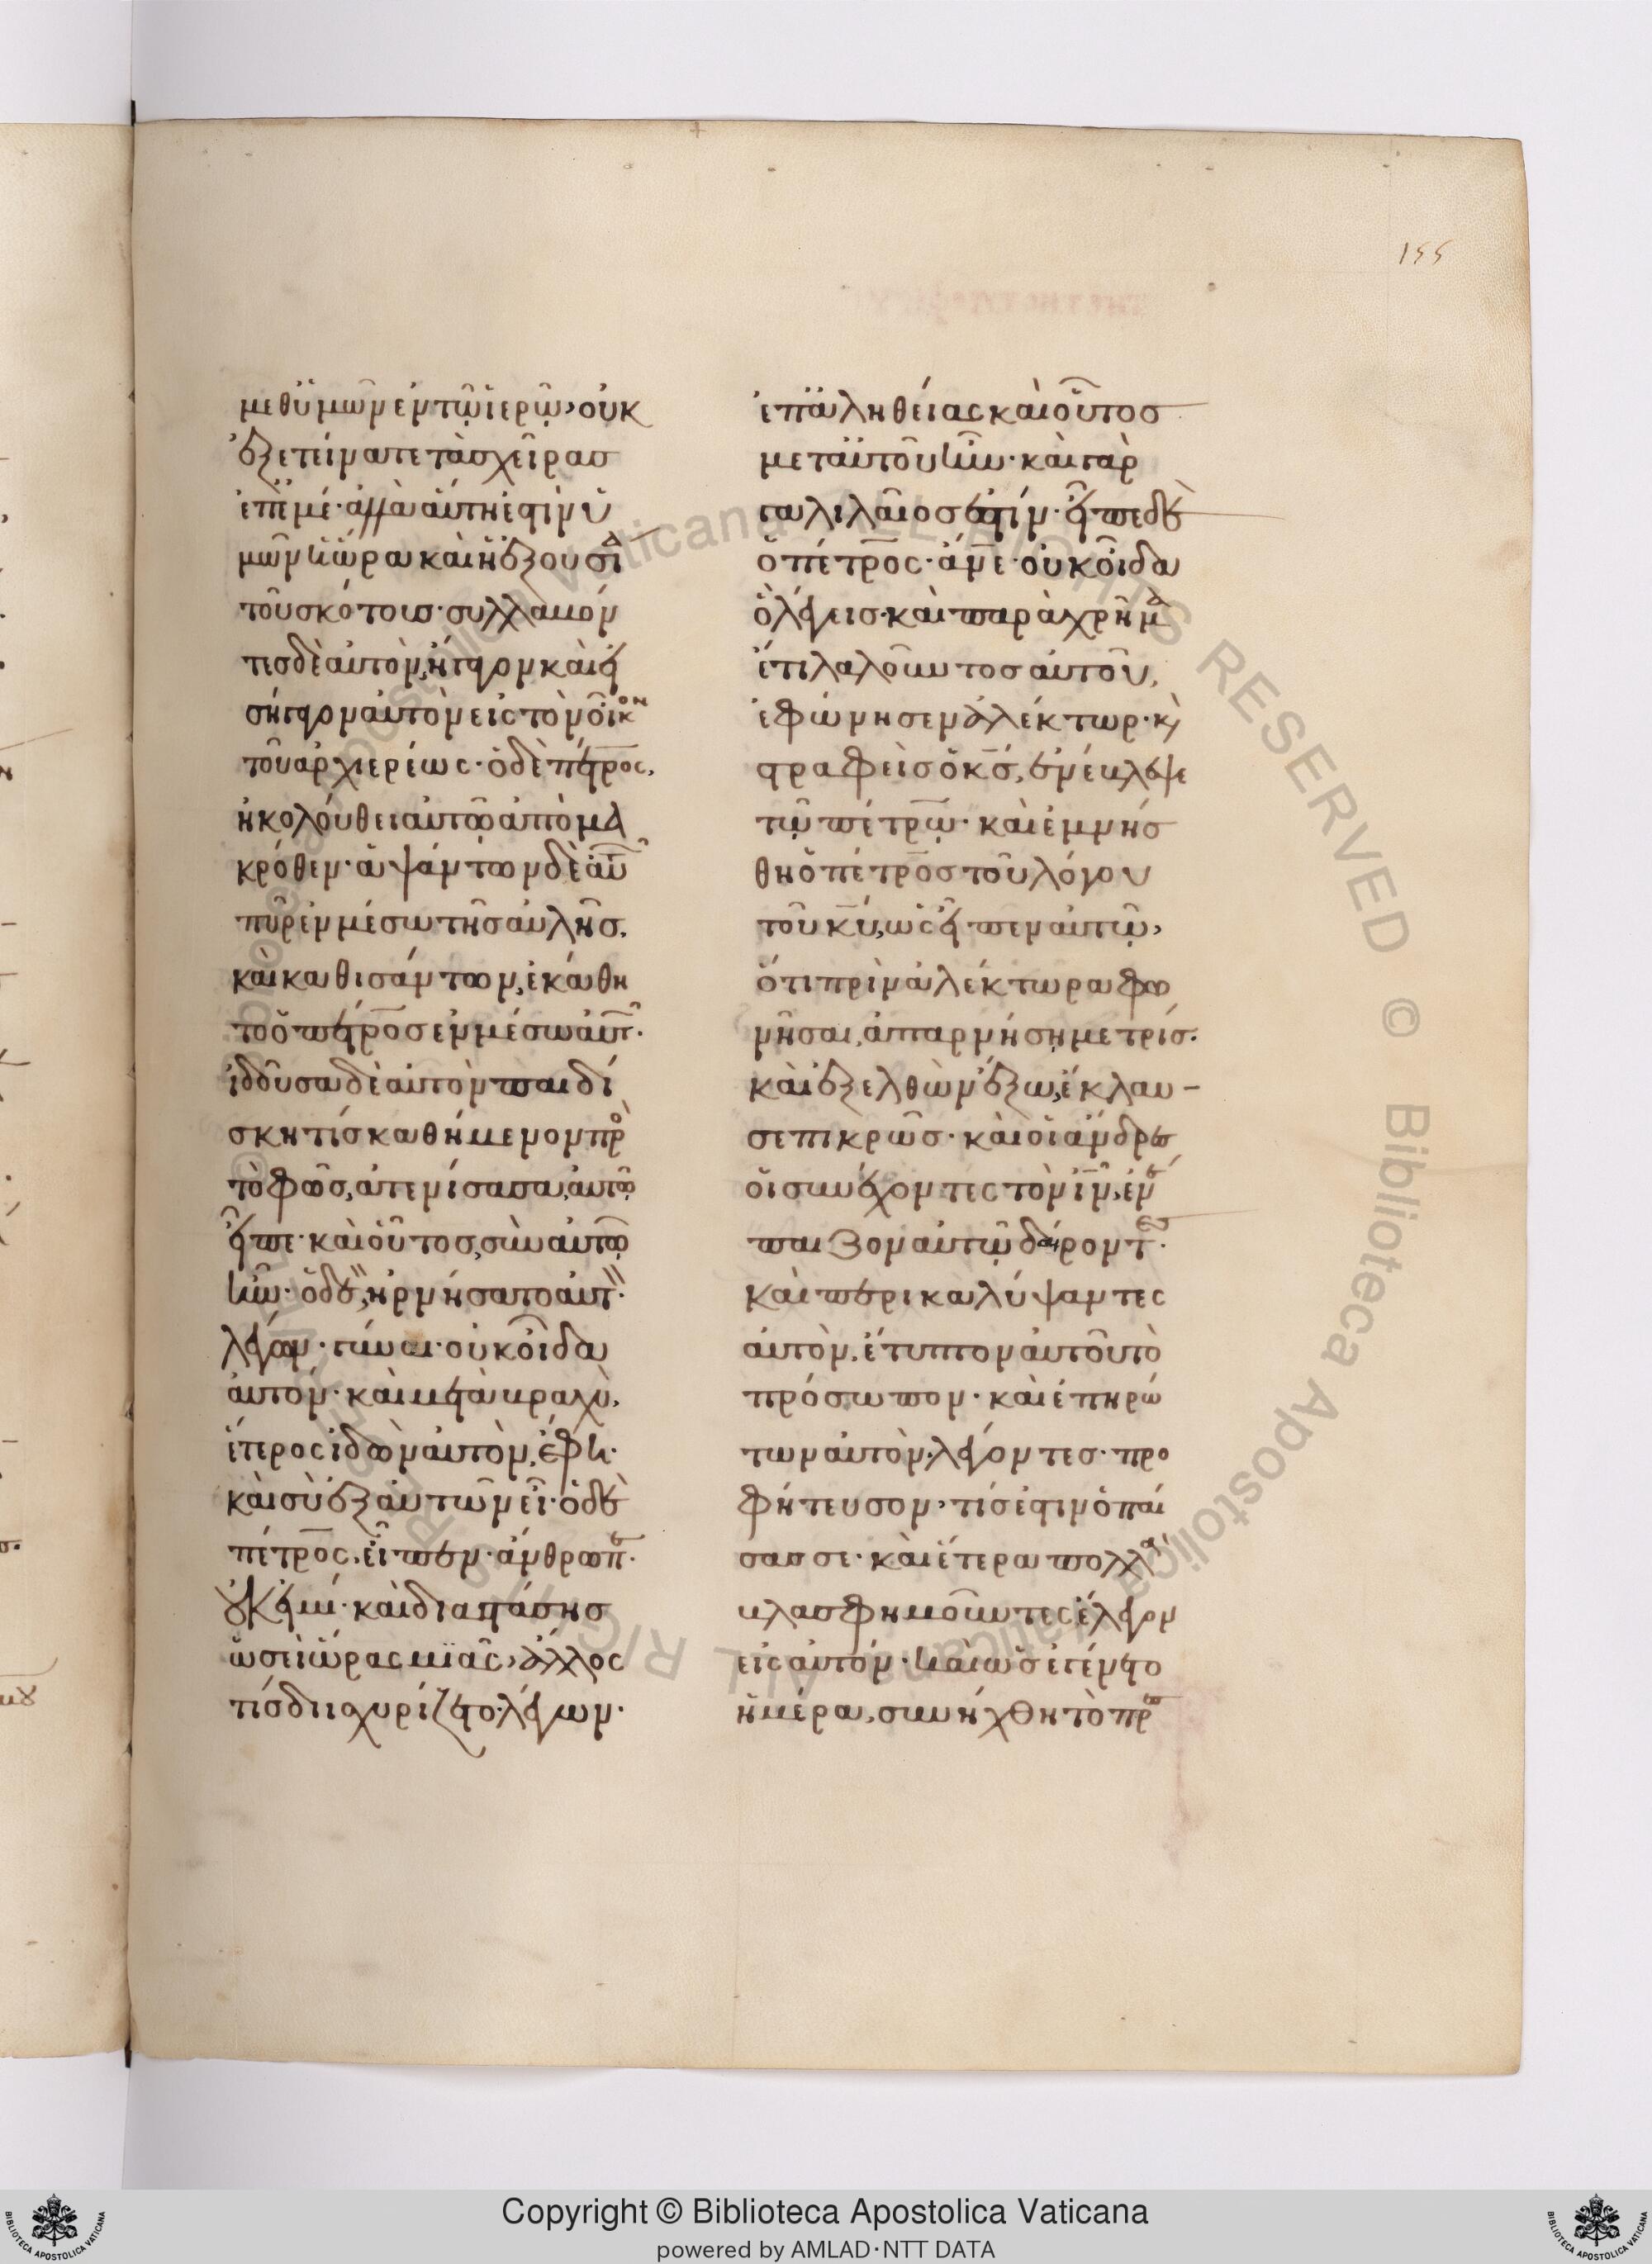 155
μεθ' ὑμῶν ἐν τῷ ἱερῷ, οὐκ
ἐξετείνατε τὰς χεῖρας
ἐπ' ἐμέ· ἀλλὰ αὕτη ἐστὶν ὑ
μῶν ἡ ὥρα καὶ ἡ ἐξουσία
τοῦ σκότους· συλλαβόν
τες δὲ αὐτὸν, ἤγαγον καὶ εἰ
σήγαγον αὐτὸν εἰς τὸν οἶκον
τοῦ ἀρχιερέως· ὁ δὲ πέτρος,
ἠκολούθει αὐτῷ ἀπὸ μα
κρόθεν· ἁψάντων δὲ αὐτῶν
πῦρ ἐν μέσω τῆς αὐλῆς,
καὶ καθισάντων, ἐκάθη
το ὁ πέτρος ἐν μέσω αὐτῶν·
ἰδοῦσα δὲ αὐτὸν παιδί
σκη τίς καθήμενον πρὸς
τὸ φῶς, ἀτενίσασα αὐτῷ
εἶπε· καὶ οὗτος, σὺν αὐτῷ
ἦν· ὁ δὲ, ἠρνήσατο αὐτὸν·
λέγων· γύναι· οὐκ οἶδα
αὐτόν· καὶ μετὰ βραχὺ,
ἕτερος ἰδὼν αὐτὸν, ἔφη·
καὶ σὺ ἐξ αὐτῶν εἶ· ὁ δὲ
πέτρος, εἶπεν· ἄνθρωπε·
οὐκ εἰμί· καὶ διαστάσης
ὡσεὶ ὥρας μιᾶς, ἄλλος
τίς διϊσχυρίζετο, λέγων·
ἐπ' ἀληθείας καὶ οὗτος
μετ' αὐτοῦ ἦν· καὶ γὰρ
γαλιλαῖος ἐστίν· εἶπε δὲ
ὁ πέτρος· ἄνε· οὐκ οἶδα
ὃ λέγεις· καὶ παραχρῆμα
ἔτι λαλοῦντος αὐτοῦ,
ἐφώνησεν ἀλέκτωρ· κὶ
στραφεὶς ὁ κς, ἐνέβλεψε
τῷ πέτρῳ· καὶ ἐμνήσ
θη ὁ πέτρος τοῦ λόγου
τοῦ κυ, ὡς εἶπεν αὐτῷ,
ὅτι πρὶν ἀλέκτωρα φω
νῆσαι, ἀπαρνήσῃ με τρίς·
καὶ ἐξελθὼν ἔξω, ἔκλαυ-
σε πικρῶς· καὶ οἱ ἄνδρες
οἱ συνέχοντες τὸν ιν, ἐνέ
παιζον αὐτῷ δαίροντες·
καὶ περικαλύψαντες
αὐτὸν, ἔτυπτον αὐτοῦ τὸ
πρόσωπον· καὶ ἐπηρώ
των αὐτὸν, λέγοντες· προ
φήτευσον, τίς ἐστιν ὁ παί
σας σε· καὶ ἕτερα πολλὰ
βλασφημοῦντες ἔλεγον
εἰς αὐτόν· καὶ ὡς ἐγένετο
ἡμέρα, συνήχθη τὸ πρε
Copyright © Biblioteca Apostolica Vaticana
powered by AMLAD·NTT DATA